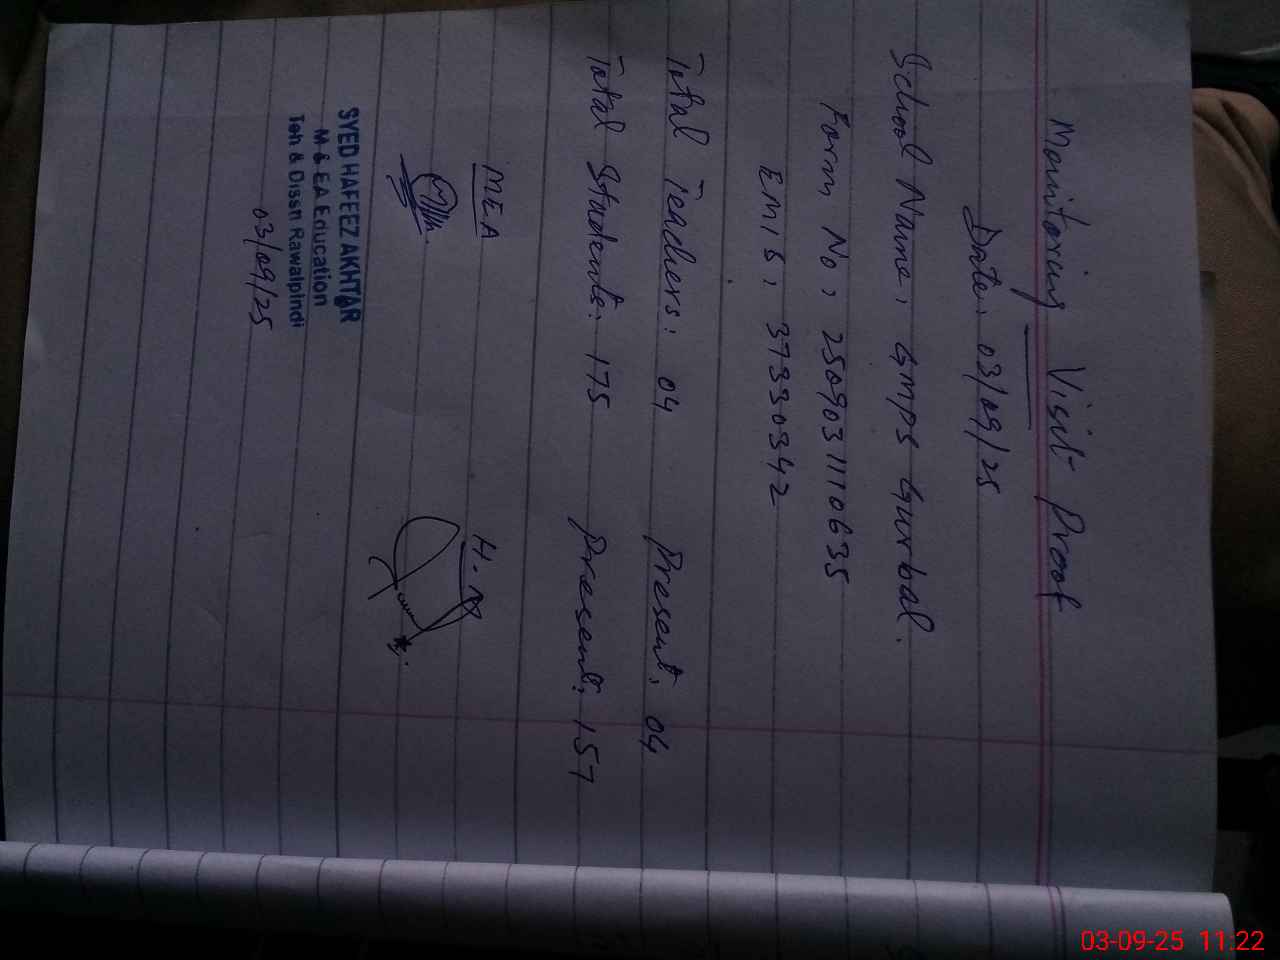 Monitoring Visit Proof
Date: 03/09/25
School Name: GMPS Gurbal.
Form No: 2509031110635
EMIS: 37330342
Total Teachers: 04 Present: 04
Total Students: 175 Present: 157
MEA H.M
SYED HAFEEZ AKHTAR
M & EA Education
Teh & Disstt Rawalpindi
03/09/25
03-09-25 11:22